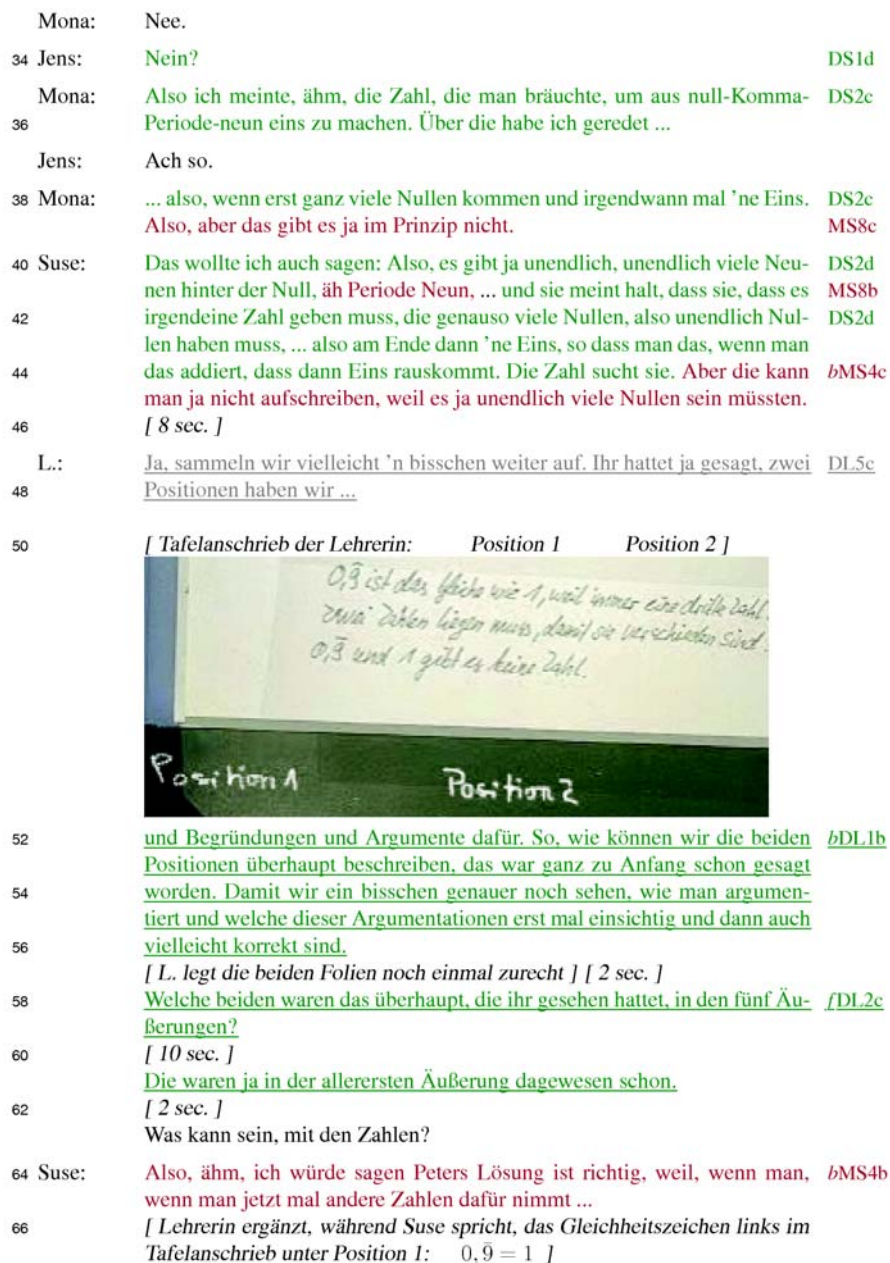 Mona: Nee.
34 Jens: Nein? DS1d
Mona: Also ich meinte, ähm, die Zahl, die man bräuchte, um aus null-Komma- DS2c
36 Periode-neun eins zu machen. Über die habe ich geredet ...
Jens: Ach so.
38 Mona: ... also, wenn erst ganz viele Nullen kommen und irgendwann mal ’ne Eins. DS2c
Also, aber das gibt es ja im Prinzip nicht. MS8c
40 Suse: Das wollte ich auch sagen: Also, es gibt ja unendlich, unendlich viele Neu- DS2d
nen hinter der Null, äh Periode Neun, ... und sie meint halt, dass sie, dass es MS8b
42 irgendeine Zahl geben muss, die genauso viele Nullen, also unendlich Nul- DS2d
len haben muss, ... also am Ende dann ’ne Eins, so dass man das, wenn man
44 das addiert, dass dann Eins rauskommt. Die Zahl sucht sie. Aber die kann bMS4c
man ja nicht aufschreiben, weil es ja unendlich viele Nullen sein müssten.
46 [ 8 sec. ]
L.: Ja, sammeln wir vielleicht ’n bisschen weiter auf. Ihr hattet ja gesagt, zwei DL5c
48 Positionen haben wir ...
50 [ Tafelanschrieb der Lehrerin: Position 1 Position 2 ]
0,9̄ ist das Gleiche wie 1, weil immer eine dritte Zahl
zwei Zahlen liegen muss, damit sie verschieden sind.
0,9̄ und 1 gibt es keine Zahl.
Position 1 Position 2
52 und Begründungen und Argumente dafür. So, wie können wir die beiden bDL1b
Positionen überhaupt beschreiben, das war ganz zu Anfang schon gesagt
54 worden. Damit wir ein bisschen genauer noch sehen, wie man argumen-
tiert und welche dieser Argumentationen erst mal einsichtig und dann auch
56 vielleicht korrekt sind.
[ L. legt die beiden Folien noch einmal zurecht ] [ 2 sec. ]
58 Welche beiden waren das überhaupt, die ihr gesehen hattet, in den fünf Äu- fDL2c
ßerungen?
60 [ 10 sec. ]
Die waren ja in der allerersten Äußerung dagewesen schon.
62 [ 2 sec. ]
Was kann sein, mit den Zahlen?
64 Suse: Also, ähm, ich würde sagen Peters Lösung ist richtig, weil, wenn man, bMS4b
wenn man jetzt mal andere Zahlen dafür nimmt ...
66 [ Lehrerin ergänzt, während Suse spricht, das Gleichheitszeichen links im
Tafelanschrieb unter Position 1: 0,9̄ = 1 ]